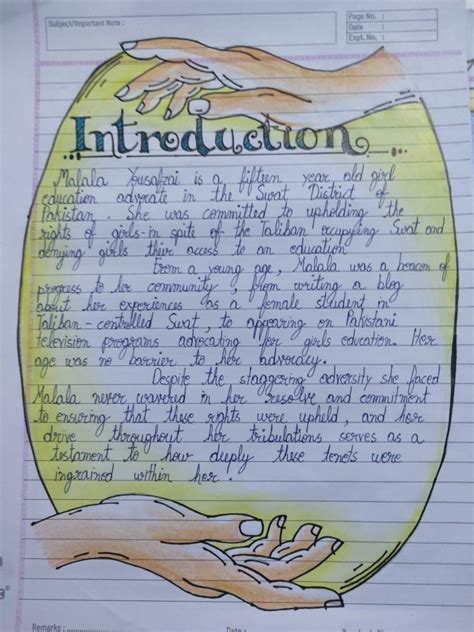 Subject/Important Note :
Page No. :
Date :
Expt. No. :
Introduction
Malala Yousafzai is a fifteen year old girl
education advocate in the Swat District of
Pakistan. She was committed to upholding the
rights of girls-in spite of the Taliban occupying Swat and
denying girls their access to an education
From a young age, Malala was a beacon of
progress to her community, from writing a blog
about her experiences as a female student in
Taliban-controlled Swat, to appearing on Pakistani
television programs advocating for girls education. Her
age was no barrier to her advocacy.
Despite the staggering adversity she faced
Malala never wavered in her resolve and commitment
to ensuring that these rights were upheld, and her
drive throughout her tribulations serves as a
testament to how deeply these tenets were
ingrained within her.
Remarks :
Date :